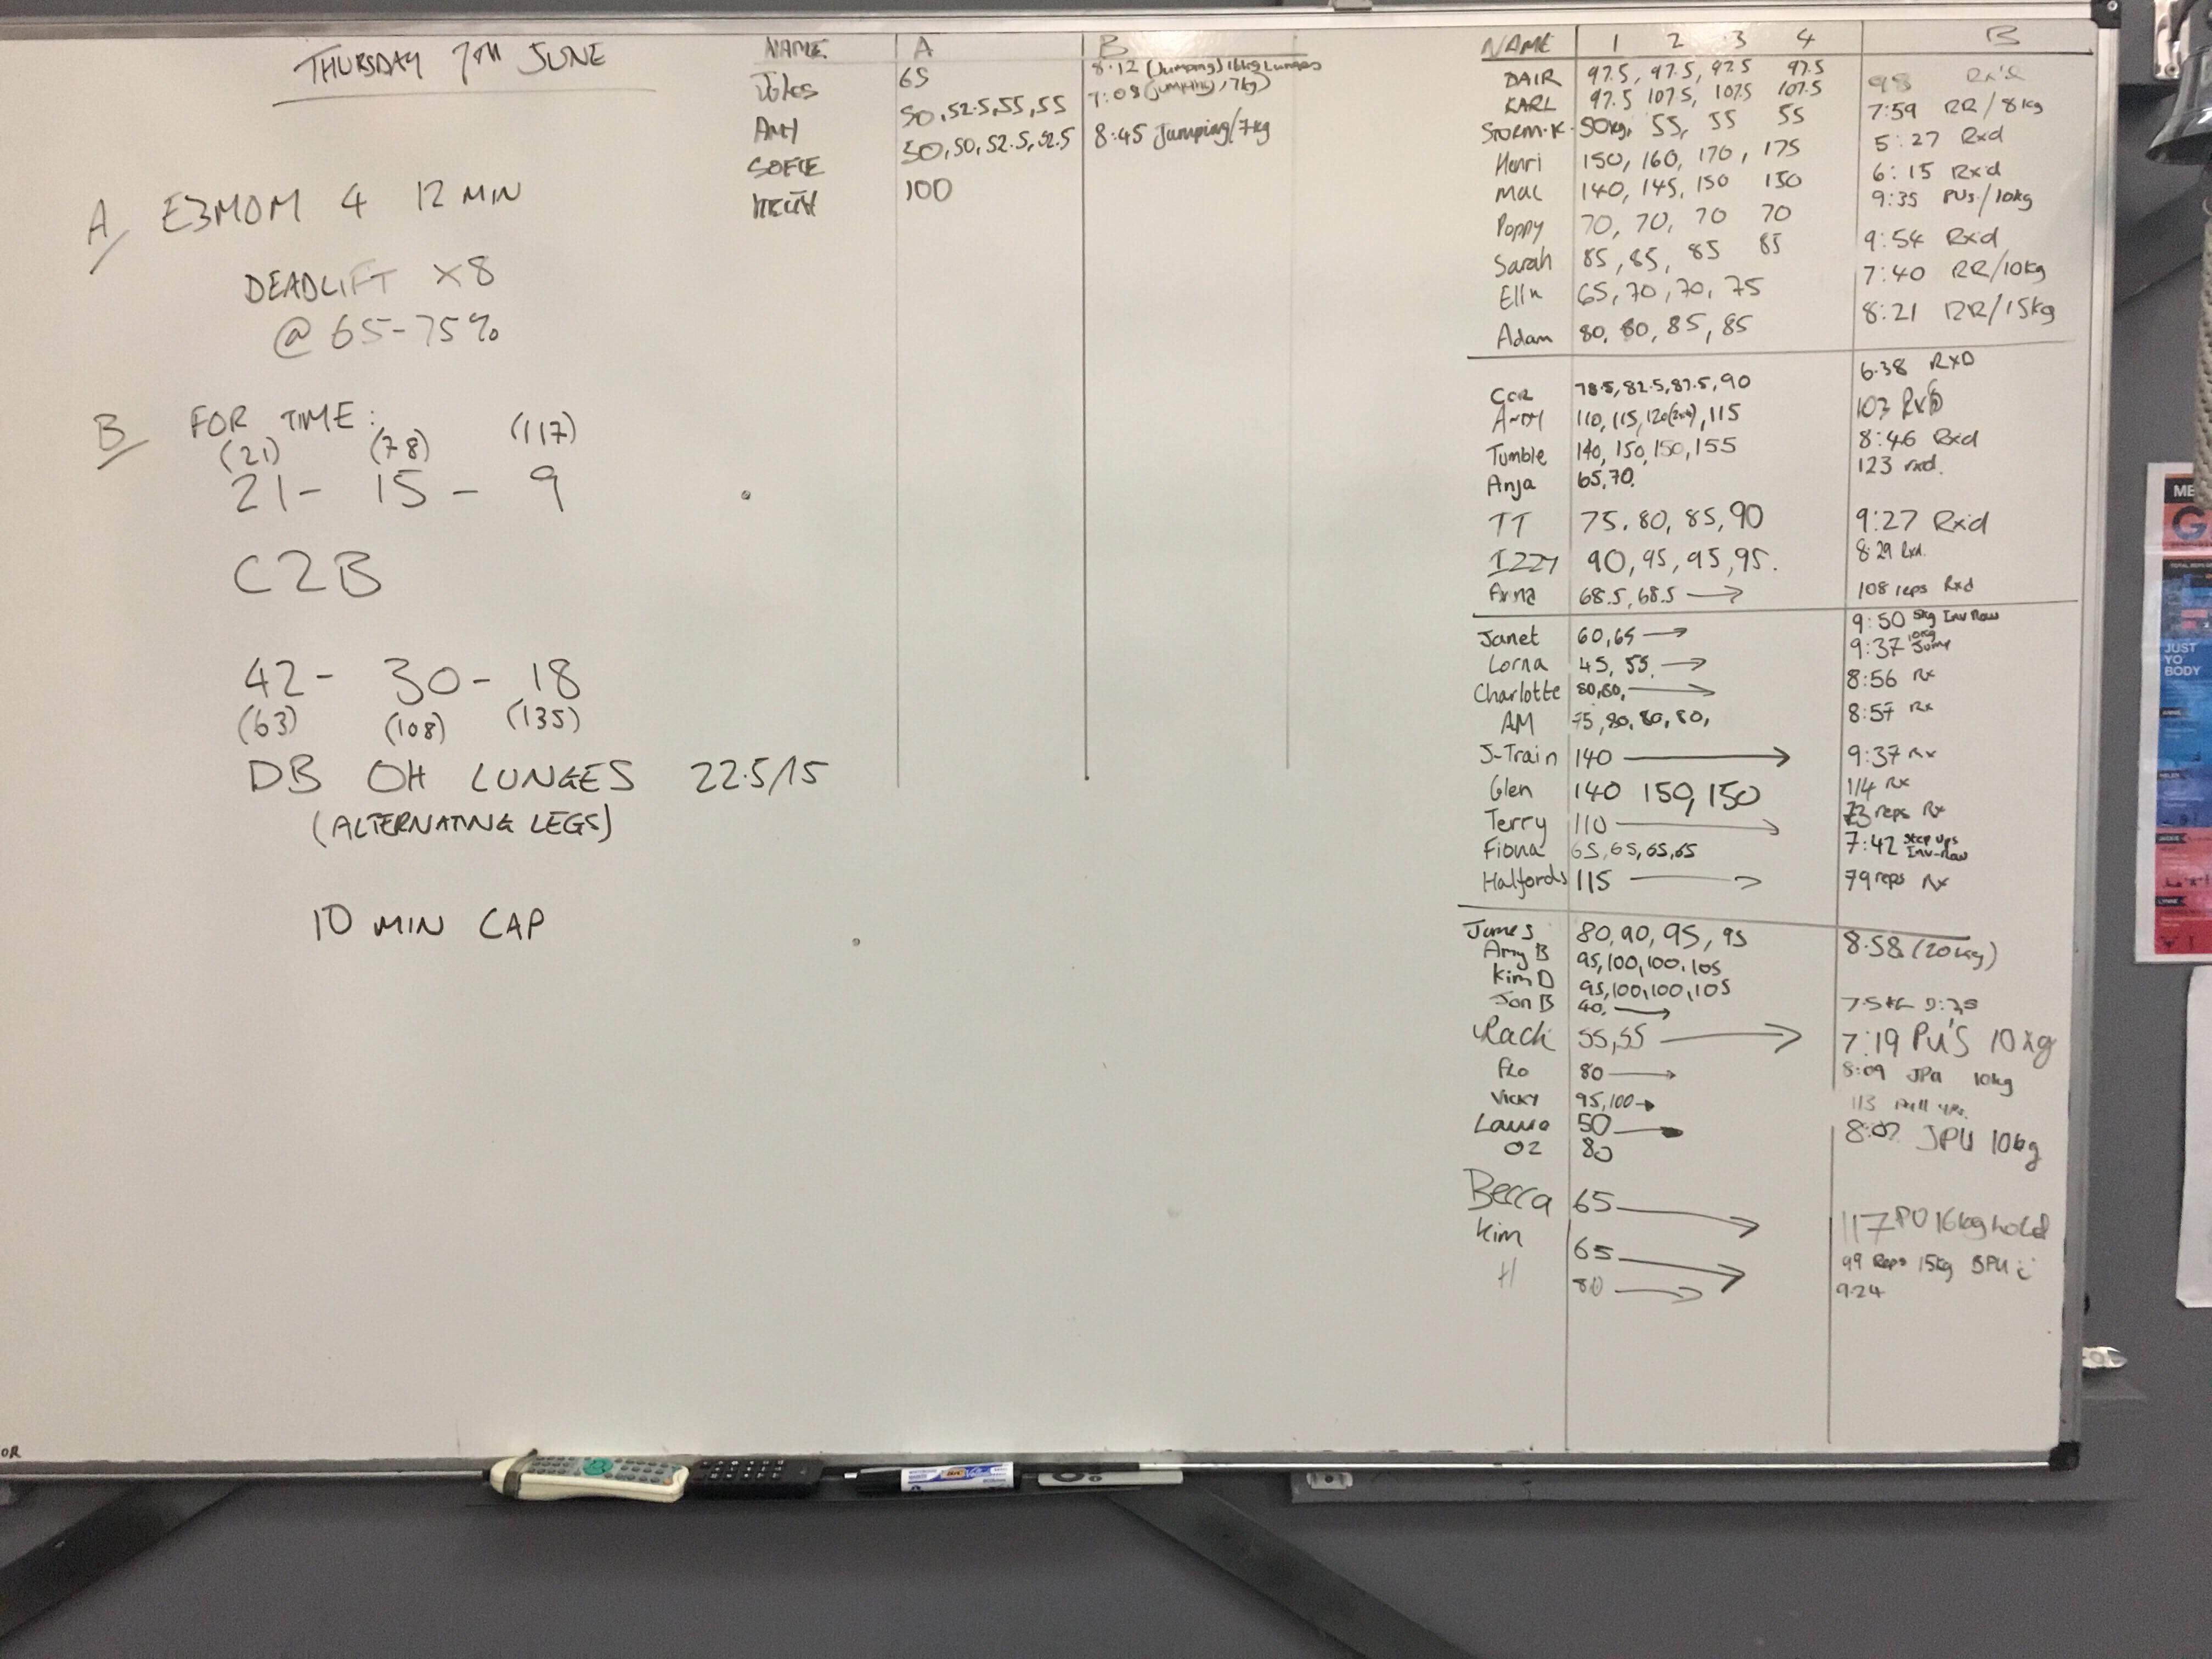 THURSDAY 7TH JUNE
A/ E3MOM 4 12 MIN
DEADLIFT x8
@ 65-75%
B/ FOR TIME:
(21) (78) (117)
21- 15- 9
C2B
42- 30- 18
(63) (108) (135)
DB OH LUNGES 22.5/15
(ALTERNATING LEGS)
10 MIN CAP
NAME A B
65 8:12 (Jumping) 16kg Lunges
AMY 50, 52.5, 55, 55 7:08 (jumping, 7kg)
SOFIE 50, 50, 52.5, 52.5 8:45 Jumping/7kg
KEITH 100
NAME 1 2 3 4 B
DAIR 97.5, 97.5, 97.5 97.5 98 Rx'd
KARL 97.5 107.5, 107.5 107.5 7:59 RR/8kg
STORM.K. 50kg, 55, 55 55 5:27 Rxd
Henri 150, 160, 170, 175 6:15 Rx'd
Mac 140, 145, 150 150 9:35 PUs/10kg
Poppy 70, 70, 70 70 9:54 Rxd
Sarah 85, 85, 85 85 7:40 RR/10kg
Ella 65, 70, 70, 75 8:21 RR/15kg
Adam 80, 80, 85, 85
78.5, 82.5, 87.5, 90 6:38 RXD
ANDY 110, 115, 120(2x4), 115 103 Rx
Tumble 140, 150, 150, 155 8:46 Rxd
Anja 65, 70. 123 rxd.
TT 75, 80, 85, 90 9:27 Rxd
IZZY 90, 95, 95, 95. 8:29 Rxd.
Anna 68.5, 68.5 → 108 reps Rxd
Janet 60, 65 → 9:50 5kg Inv Row
Lorna 45, 55. → 9:37 10kg Jump
Charlotte 80, 80, → 8:56 Rx
AM 75, 80, 80, 80, 8:57 Rx
J-Train 140 → 9:37 Rx
Glen 140 150, 150 114 Rx
Terry 110 → 73 reps Rx
Fiona 65, 65, 65, 65 7:42 Step ups Inv-Row
Halfords 115 → 79 reps Rx
James 80, 90, 95, 95 8:58 (20kg)
Amy B 95, 100, 100, 105
Kim D 95, 100, 100, 105
Jon B 40. →
Rach 55, 55 → 7:19 PU'S 10kg
FLO 80 → 8:09 JPU 10kg
VICKY 95, 100 → 113 Pull ups.
50 → 8:07 JPU 10kg
OZ 80
Becca 65 → 117 PU 16kg hold
Kim 65 → 99 Reps 15kg BPU
H 80 → 9:24
ME
G
JUST
YO
BODY
OR